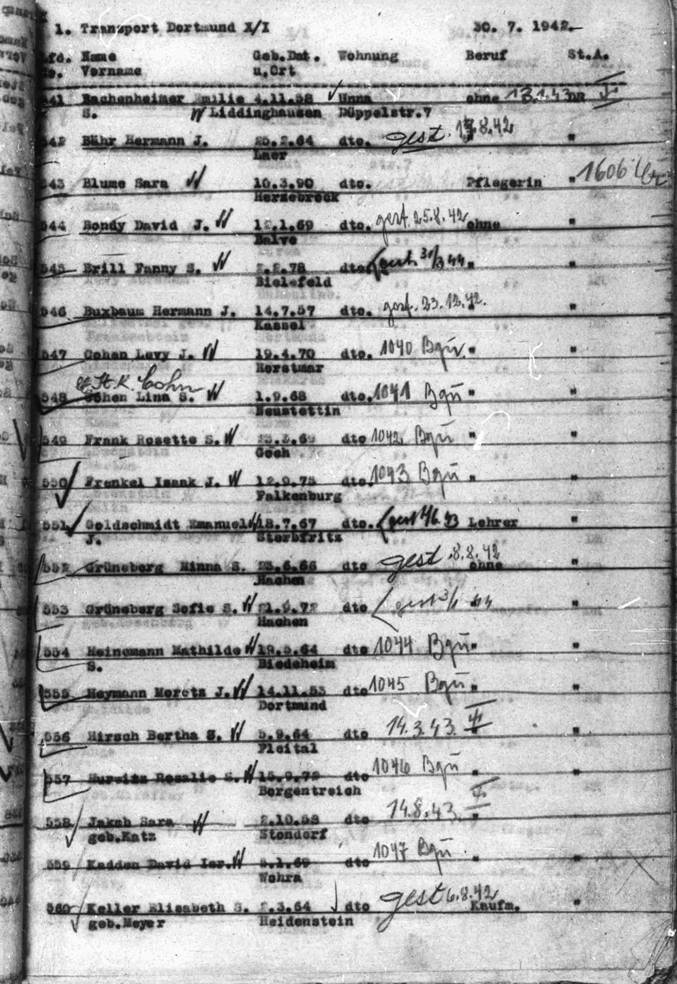 1. Transport Dortmund X/I 30. 7. 1942.
Lfd. Name Geb.Dat. Wohnung Beruf St.A.
Vorname u.Ort
541 Bachenheimer Emilie 4.11.58 Unna ohne 13.1.43
S. Liddinghausen Düppelstr.7
542 Bähr Hermann J. 2.64 dto. gest. 8.42 "
Laer
543 Blume Sara 10.3.90 dto. Pflegerin " 1606
Herzebrock
544 Bondy David J. 1.69 dto. gest. 25.8.42 ohne "
Balve
545 Brill Fanny S. 2.2.78 dto gest. "
Bielefeld
546 Buxbaum Hermann J. 14.7.57 dto. gest. 23.12.42 "
Kassel
547 Cohen Levy J. 19.4.70 dto. 1040 Bqu "
Horstmar
Cohn
548 Cohen Lina S. 1.9.68 dto. 1041 Bqu "
Neustettin
549 Frank Rosette S. dto 1042 Bqu "
Goch
550 Frenkel Isaak J. 12.9.75 dto. 1043 Bqu "
Falkenburg
551 Goldschmidt Emanuel 18.7.67 dto. gest Lehrer "
J. Sterbfritz
552 Grüneberg Minna S. 6.66 dto gest 8.8.42 ohne "
Hachen
553 Grüneberg Sofie S. 21.9.72 dto gest "
Hachen
554 Heinemann Mathilde 19.5.64 dto 1044 Bqu "
S. Biedeheim
555 Heymann Moretz J. 14.11.53 dto 1045 Bqu "
Dortmund
556 Hirsch Bertha S. 5.9.64 dto 14.3.43 " "
Fleital
557 Rosalie S. 15.9.72 dto 1046 Bqu " "
Borgentreich
558 Jakob Sara 2.10.58 dto 14.8.43 " "
geb.Katz Stondorf
559 Kadden David Isr. 1.69 dto 1047 Bqu " "
Wohra
560 Keller Elisabeth S. 2.3.64 dto gest 6.8.42 Kaufm. "
geb.Meyer Heidenstein